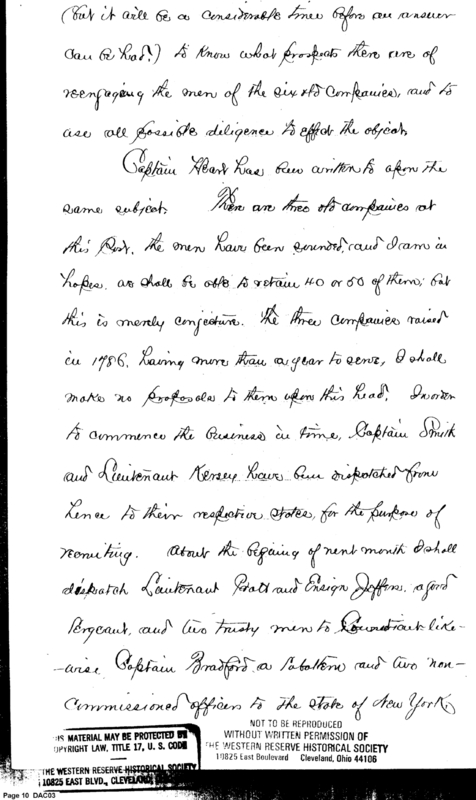 (but it will be a considerable time before an answer
can be had?) to know what prospects there are of
reengaging the men of the six old Companies, and to
use all possible diligence to effect the object.
Captain Heart has been written to upon the
same subject. There are three old companies at
this Post, the men have been sounded, and I am in
hopes, we shall be able to retain 40 or 50 of them; but
this is merely conjecture. The three Companies raised
in 1786, having more than a year to serve, I shall
make no proposals to them upon this head. In order
to commence the business in time, Captain Smith
and Lieutenant Kersey have been dispatched from
hence to their respective states, for the purpose of
recruiting. About the begining of next month I shall
dispatch Lieutenant Pratt and Ensign Jeffers, a good
Sergeant, and two trusty men to Connecticut like-
-wise Captain Bradford, a Subaltern and two non-
Commissioned officers to the State of New York,
THIS MATERIAL MAY BE PROTECTED BY
COPYRIGHT LAW, TITLE 17, U. S. CODE
THE WESTERN RESERVE HISTORICAL SOCIETY
10825 EAST BLVD., CLEVELAND,
NOT TO BE REPRODUCED
WITHOUT WRITTEN PERMISSION OF
THE WESTERN RESERVE HISTORICAL SOCIETY
10825 East Boulevard Cleveland, Ohio 44106
Page 10 DAC03